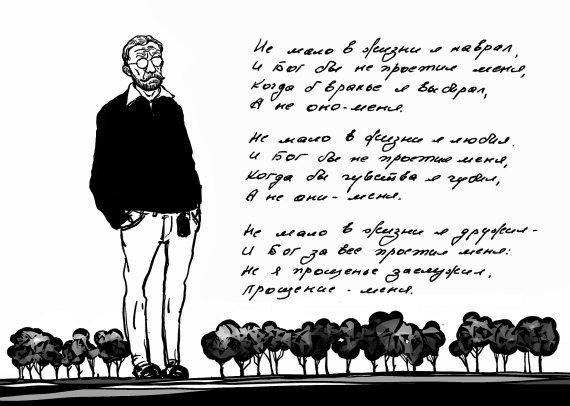 Не мало в жизни я наврал,
И Бог бы не простил меня,
Когда б вранье я выбрал,
А не оно-меня.
Не мало в жизни я любил.
И Бог бы не простил меня,
Когда бы чувства я губил,
А не они-меня.
Не мало в жизни я дружил-
И Бог за все простил меня:
Не я прощенье заслужил,
Прощение-меня.